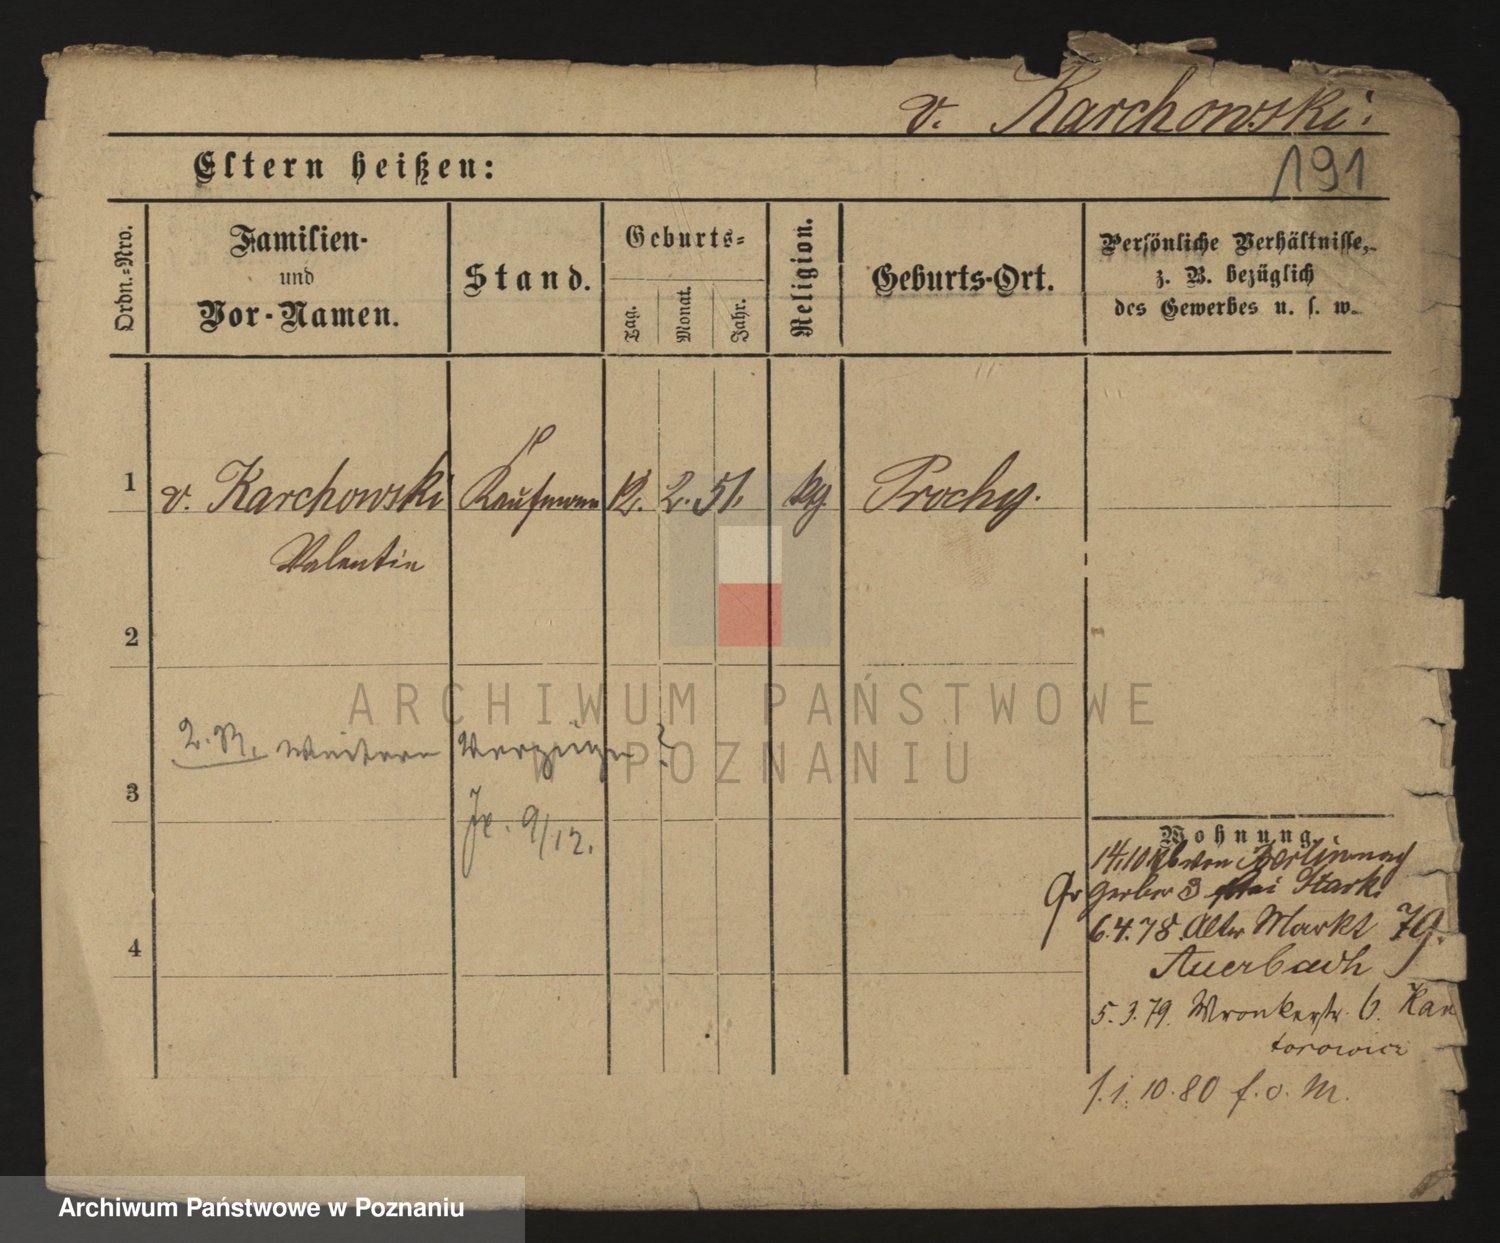 v. Karchowski.
Eltern heißen:
191
Ordn.-Nro.
Familien-
und
Vor-Namen.
Stand.
Geburts-
Tag.
Monat.
Jahr.
Religion.
Geburts-Ort.
Persönliche Verhältnisse,
z. B. bezüglich
des Gewerbes u. s. w.
1 v. Karchowski Kaufmann 12. 2. 51. kg. Prochy.
Valentin
2
2. M. weitern
3
9/12.
Wohnung.
14.10 76 von Berlin nach
Gr Gerber 8 bei Stark.
6.4.78. Alter Markt 79.
Auerbach
4
5.3.79. Wronkerstr. 6. Kan
torowicz
1.10.80 f. o. M.
ARCHIWUM PAŃSTWOWE
W POZNANIU
Archiwum Państwowe w Poznaniu